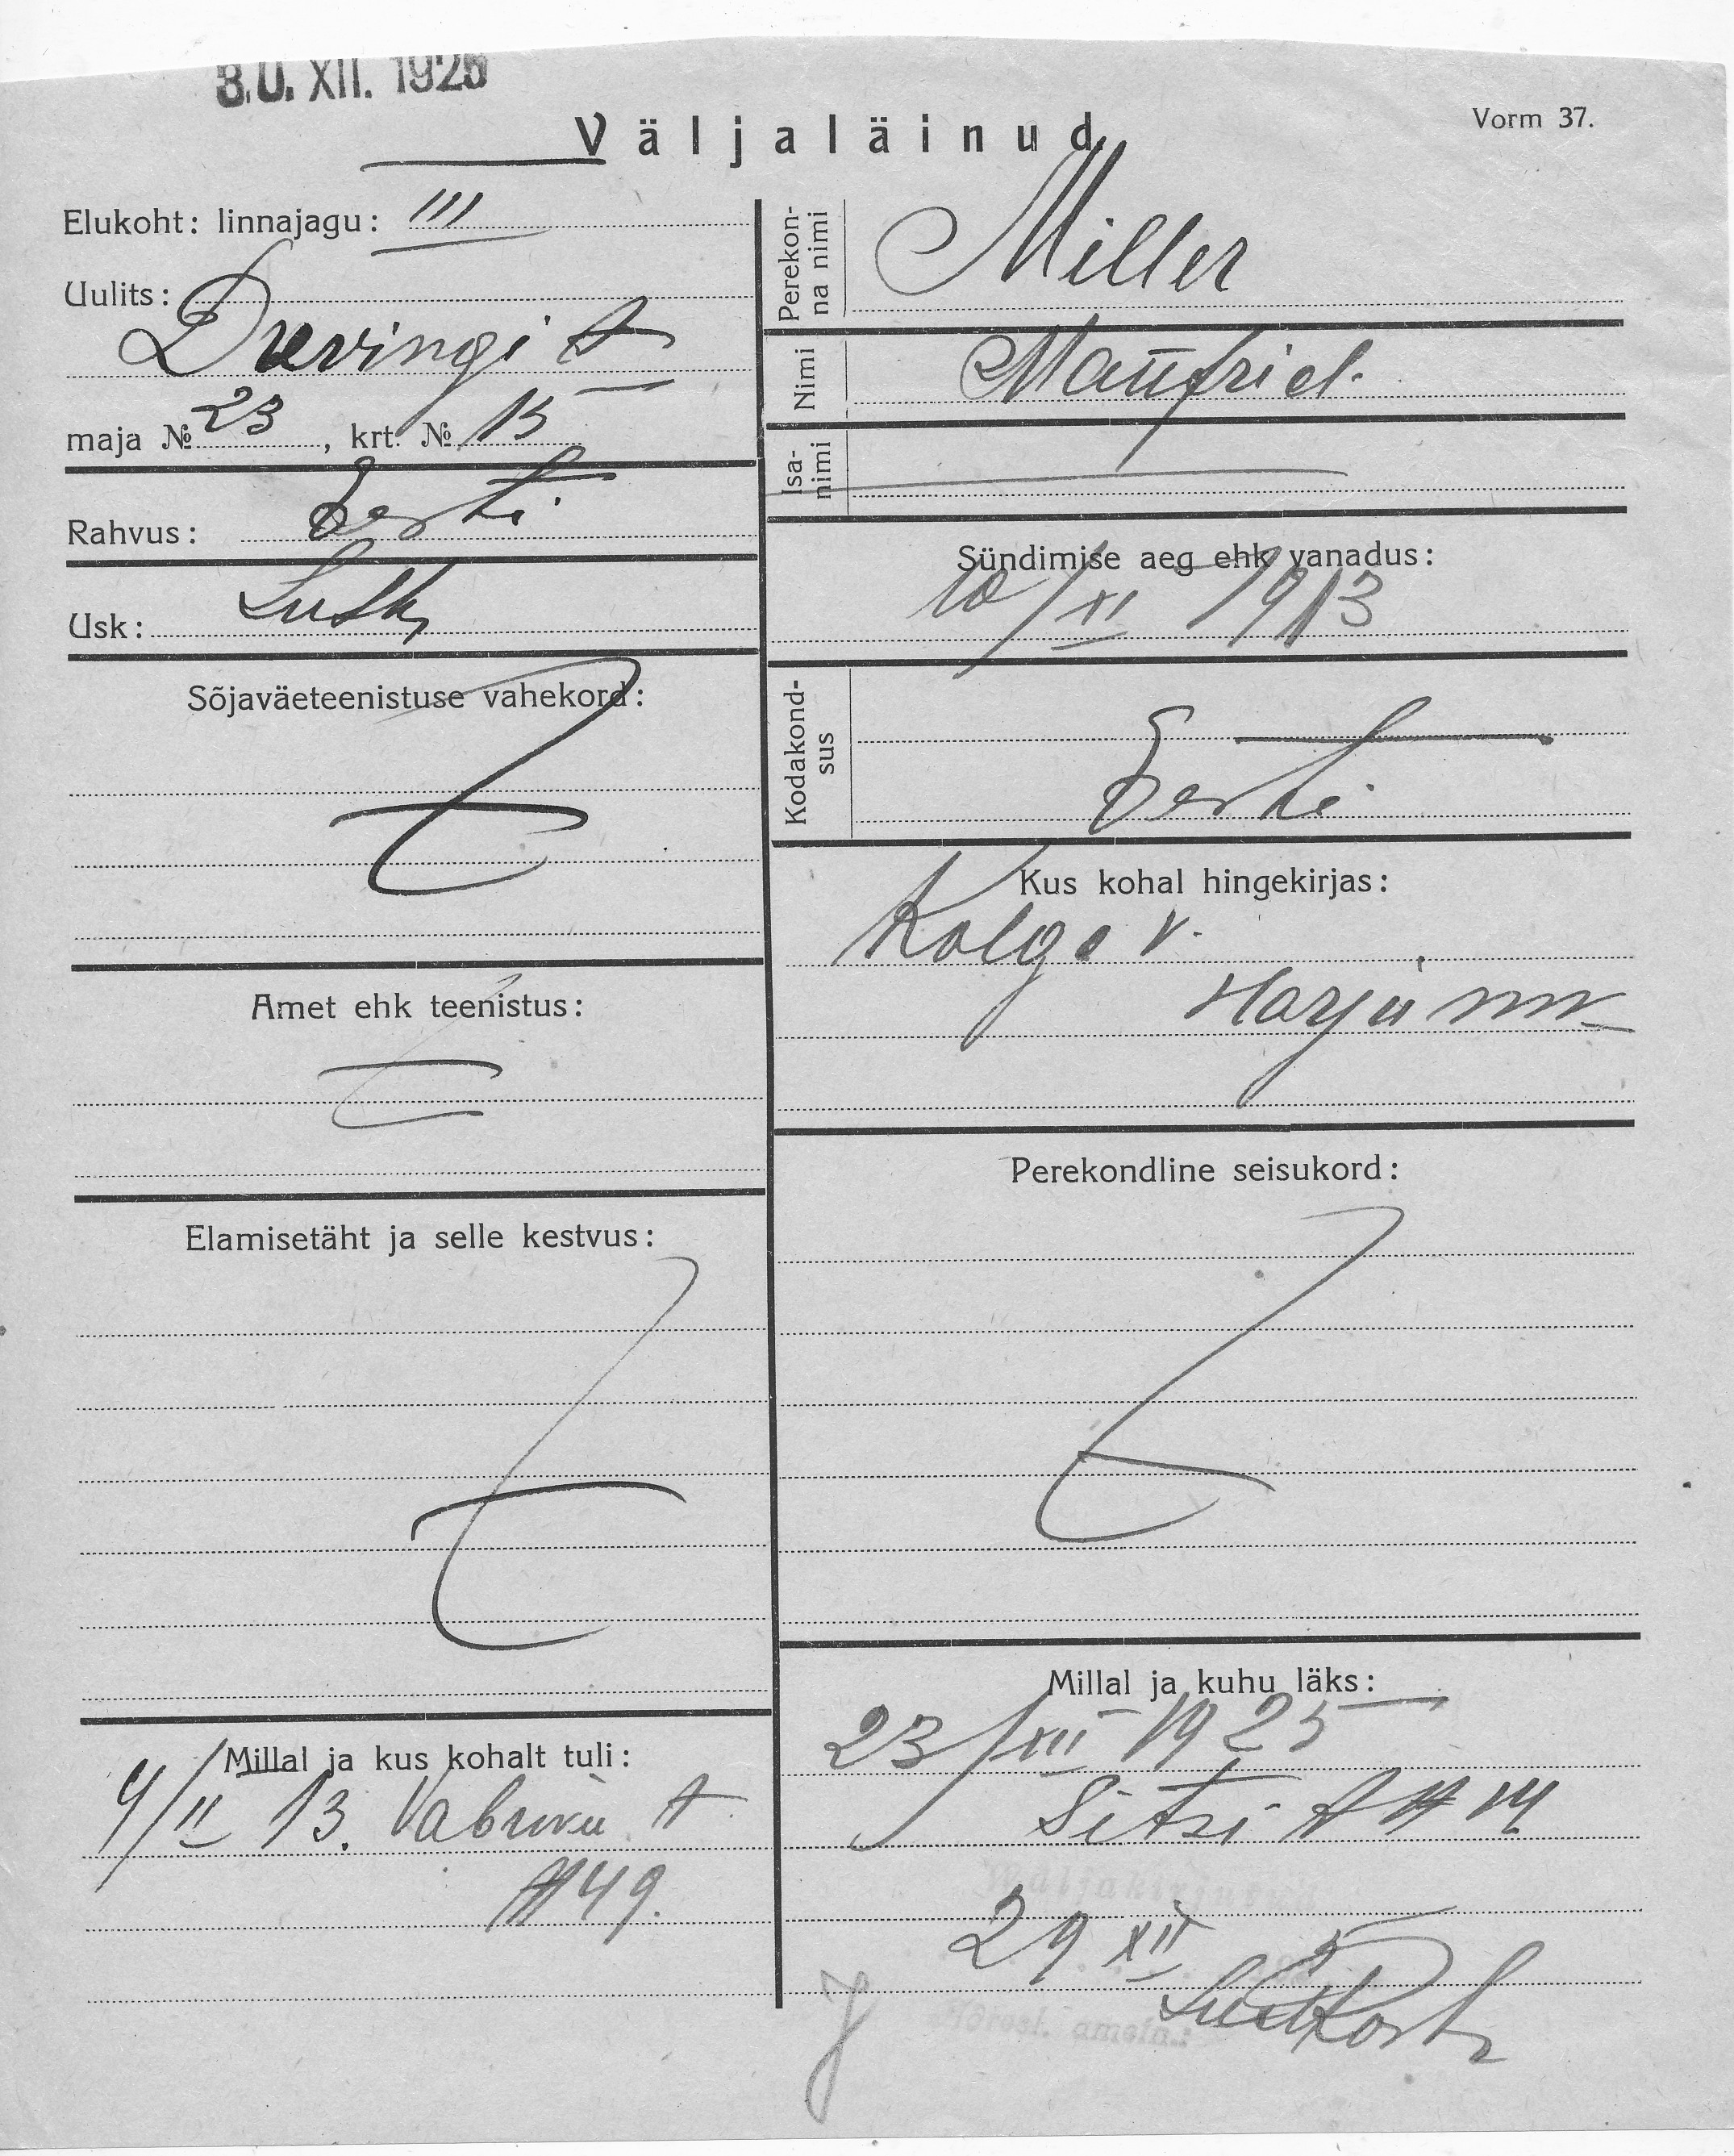 30. XII. 1925
Vorm 37.
Väljaläinud
Elukoht: linnajagu: III
Uulits:
t
maja № 23, krt. № 15
Rahvus: Eesti
Usk: Luth,
Sõjaväeteenistuse vahekord:
Amet ehk teenistus:
Elamisetäht ja selle kestvus:
Millal ja kus kohalt tuli:
4/II 13. Vabriku t
№ 49.
Perekon-
na nimi
Miller
Nimi
Manfried.
Isa-
nimi
Sündimise aeg ehk vanadus:
10/XI 1913
Kodakond-
sus
Eesti
Kus kohal hingekirjas:
Kolga v.
Harju mm
Perekondline seisukord:
Millal ja kuhu läks:
23/XII 1925
Sitsi t № 14
Väljakirjutatud
29 XII 5
Adresl. ametn.: